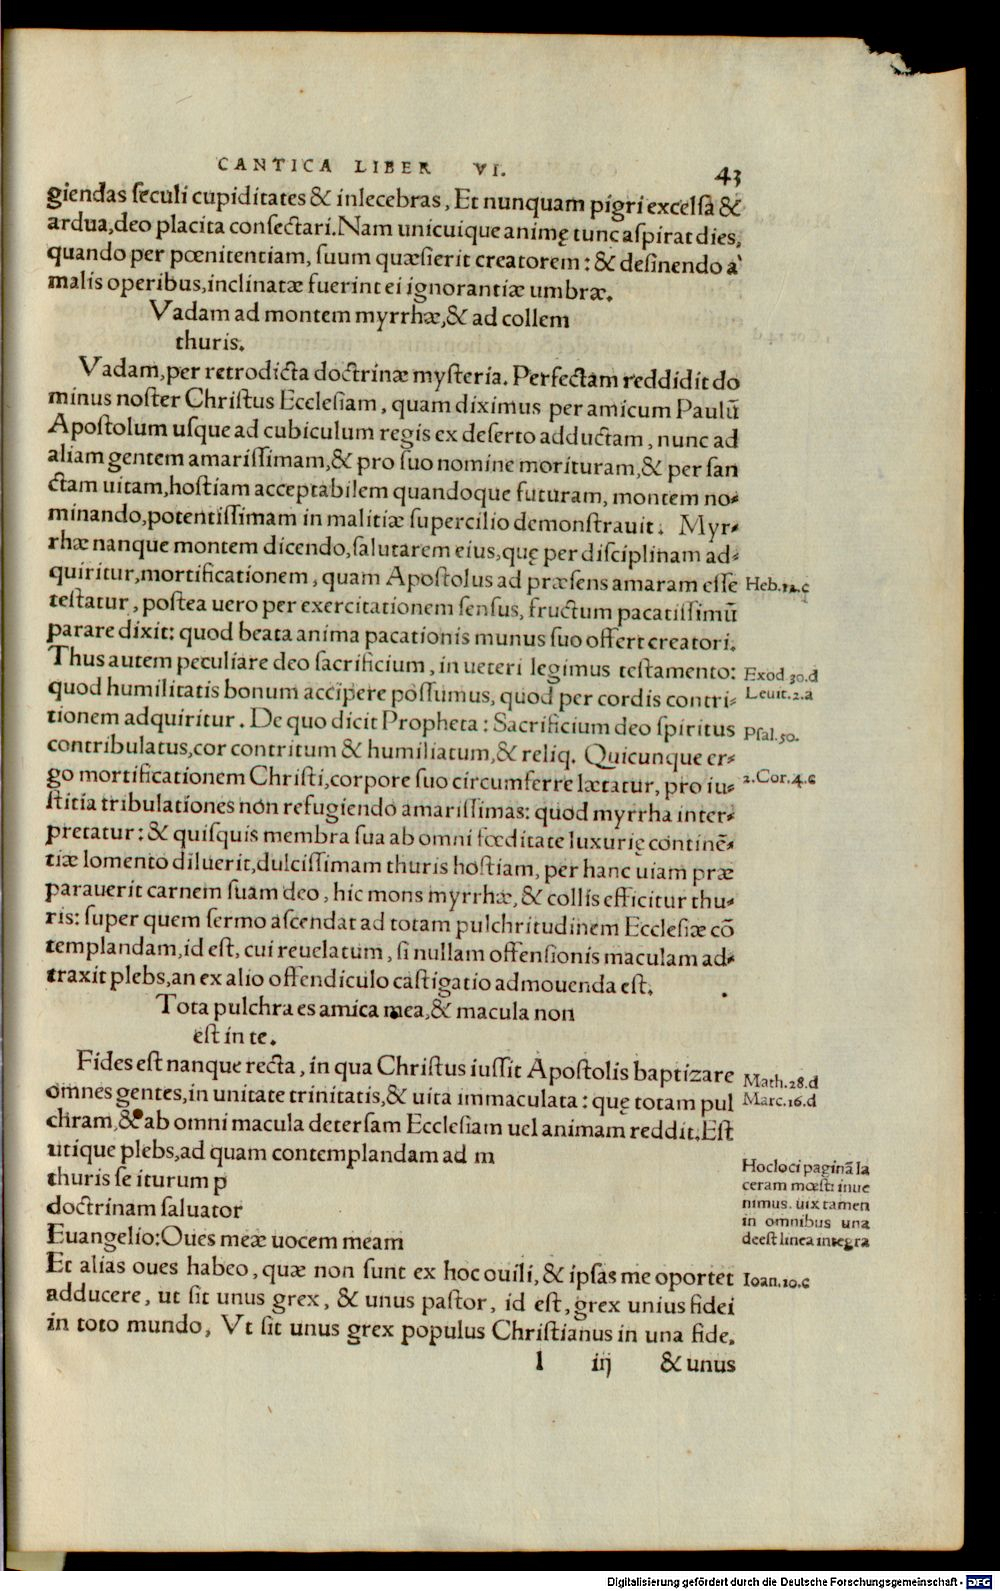 CANTICA LIBER VI. 43
giendas seculi cupiditates & inlecebras, Et nunquam pigri excelsa &
ardua, deo placita consectari. Nam unicuique animę tunc aspirat dies,
quando per pœnitentiam, suum quæsierit creatorem: & desinendo à
malis operibus, inclinatæ fuerint ei ignorantiæ umbræ.
Vadam ad montem myrrhæ, & ad collem
thuris.
Vadam, per retrodicta doctrinæ mysteria. Perfectam reddidit do
minus noster Christus Ecclesiam, quam diximus per amicum Paulū
Apostolum usque ad cubiculum regis ex deserto adductam, nunc ad
aliam gentem amarissimam, & pro suo nomine morituram, & per san
ctam uitam, hostiam acceptabilem quandoque futuram, montem no-
minando, potentissimam in malitiæ supercilio demonstrauit. Myr-
rhæ nanque montem dicendo, salutarem eius, quę per disciplinam ad-
quiritur, mortificationem, quam Apostolus ad præsens amaram esse
testatur, postea uero per exercitationem sensus, fructum pacatissimū
parare dixit: quod beata anima pacationis munus suo offert creatori.
Thus autem peculiare deo sacrificium, in ueteri legimus testamento:
quod humilitatis bonum accipere possumus, quod per cordis contri-
tionem adquiritur. De quo dicit Propheta: Sacrificium deo spiritus
contribulatus, cor contritum & humiliatum, & reliq. Quicunque er-
go mortificationem Christi, corpore suo circumferre lætatur, pro iu-
stitia tribulationes non refugiendo amarissimas: quod myrrha inter-
pretatur: & quisquis membra sua ab omni fœditate luxurię continē-
tiæ lomento diluerit, dulcissimam thuris hostiam, per hanc uiam præ
parauerit carnem suam deo, hic mons myrrhæ, & collis efficitur thu-
ris: super quem sermo ascendat ad totam pulchritudinem Ecclesiæ cō
templandam, id est, cui reuelatum, si nullam offensionis maculam ad-
traxit plebs, an ex alio offendiculo castigatio admouenda est.
Tota pulchra es amica mea, & macula non
est in te.
Fides est nanque recta, in qua Christus iussit Apostolis baptizare
omnes gentes, in unitate trinitatis, & uita immaculata: quę totam pul
chram, & ab omni macula detersam Ecclesiam uel animam reddit. Est
utique plebs, ad quam contemplandam ad m
thuris se iturum p
doctrinam saluator
Euangelio: Oues meæ uocem meam
Et alias oues habeo, quæ non sunt ex hoc ouili, & ipsas me oportet
adducere, ut sit unus grex, & unus pastor, id est, grex unius fidei
in toto mundo, Vt sit unus grex populus Christianus in una fide.
l iij & unus
Heb.12.c
Exod 30.d
Leuit.2.a
Psal.50.
2.Cor.4.c
Math.28.d
Marc.16.d
Hoc loci paginā la
ceram mœsti inue
nimus. uix tamen
in omnibus una
deest linea integra
Ioan.10.c
Digitalisierung gefördert durch die Deutsche Forschungsgemeinschaft - DFG